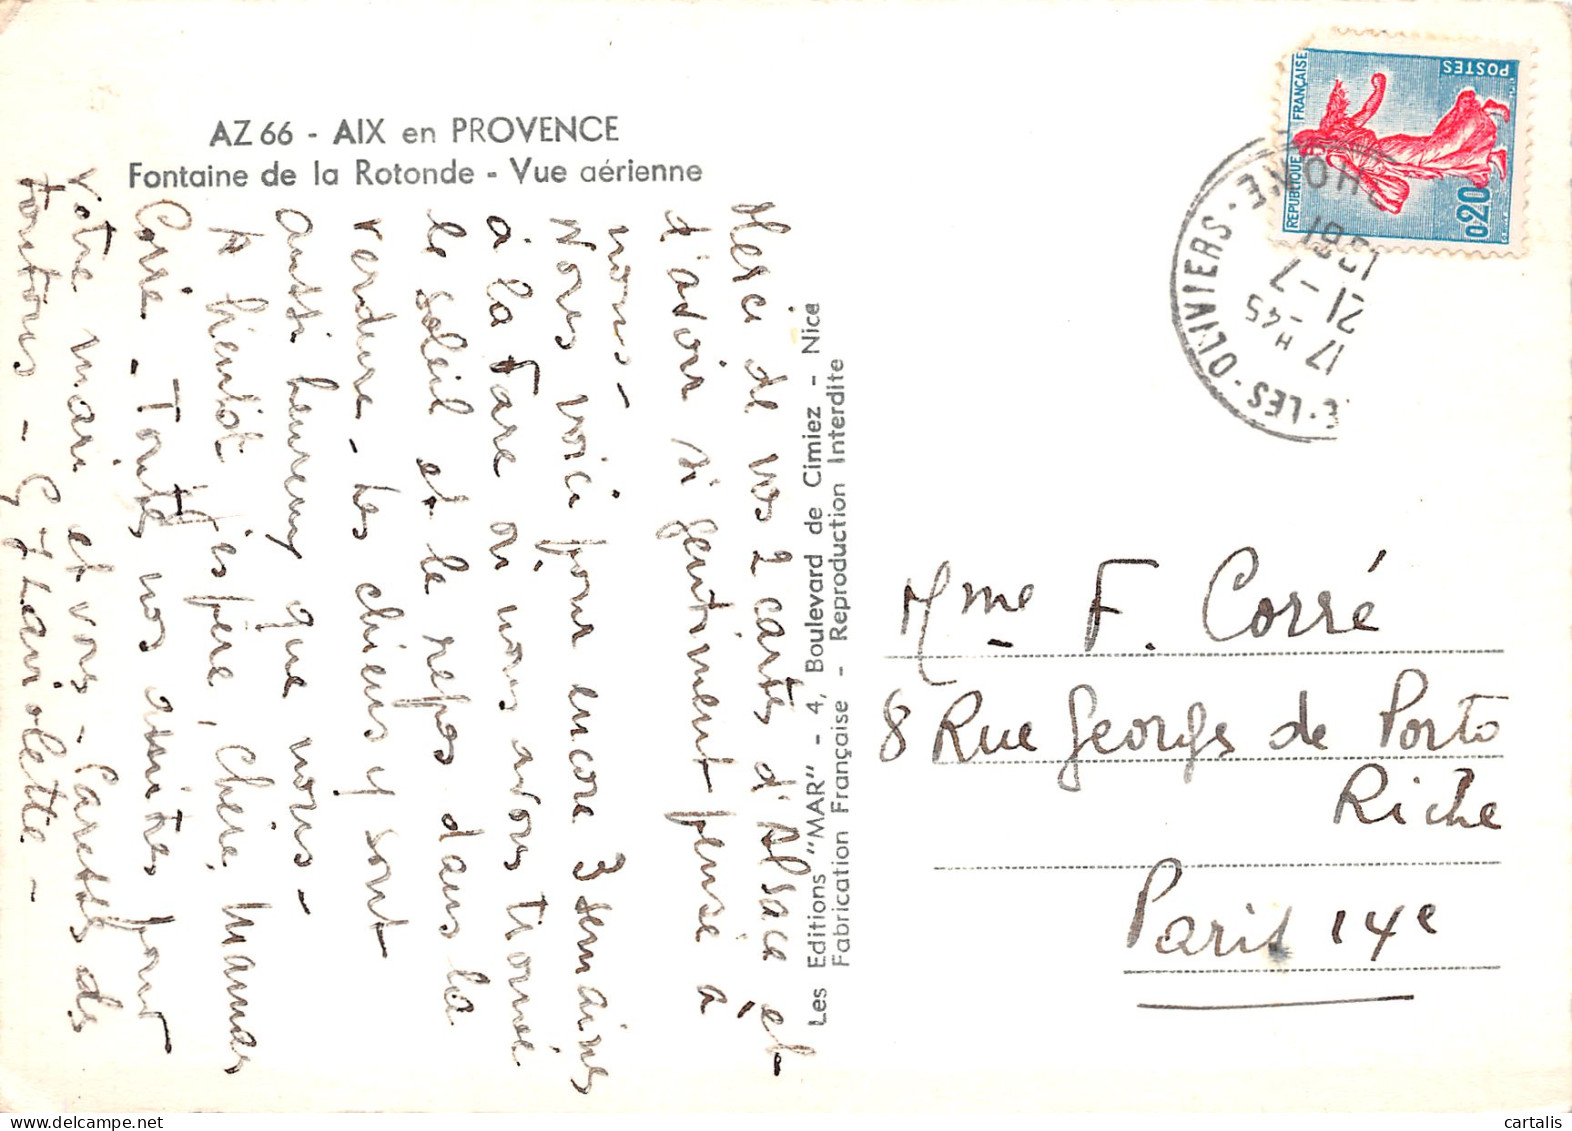 AZ 66 - AIX en PROVENCE
Fontaine de la Rotonde - Vue aérienne
Merci de vos 2 cartes d'Alsace et
d'avoir si gentiment pensé à
nous -
Nous voici pour encore 3 semaines
à la Fare où nous avons trouvé
le soleil et le repos dans la
verdure - Les chiens y sont
aussi heureux que nous -
A bientôt j'espère, chère Maman
Corré - Toutes nos amitiés pour
votre mari et vous - Caresses ds
toutous -
Les Editions "MAR" - 4, Boulevard de Cimiez - Nice
Fabrication Française - Reproduction Interdite
REPUBLIQUE FRANÇAISE
POSTES
0,20
E-LES-OLIVIERS
17 H -45
21 -7
1961
Mme F. Corré
8 Rue Georges de Porto
Riche
Paris 14e
cartalis